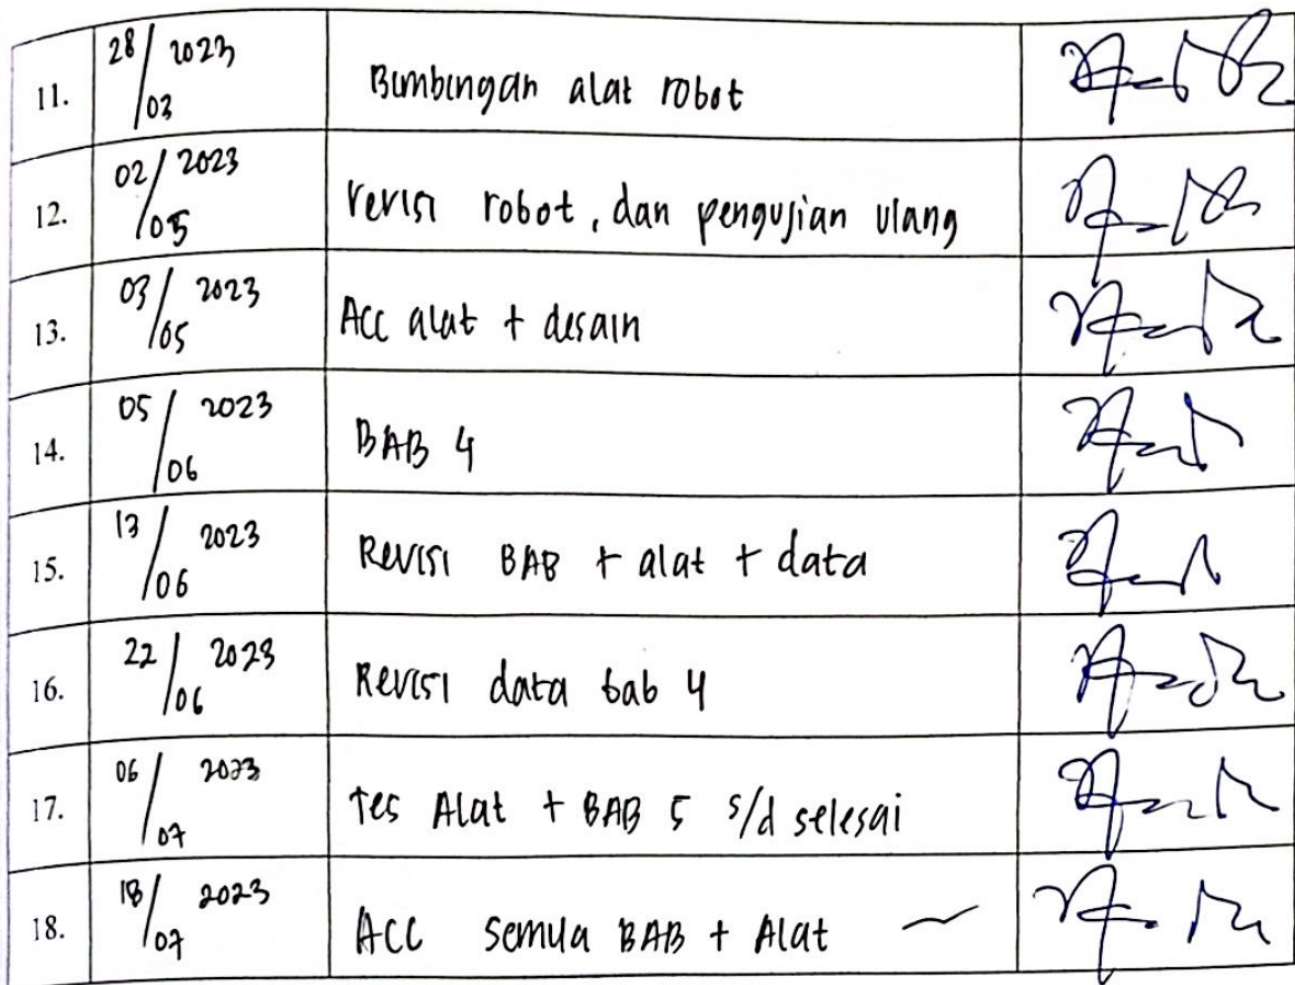 11. 28/03 2023 Bimbingan alat robot
12. 02/05 2023 revisi robot, dan pengujian ulang
13. 03/05 2023 Acc alat + desain
14. 05/06 2023 BAB 4
15. 13/06 2023 Revisi BAB + alat + data
16. 22/06 2023 Revisi data bab 4
17. 06/07 2023 Tes Alat + BAB 5 s/d selesai
18. 18/07 2023 ACC semua BAB + Alat